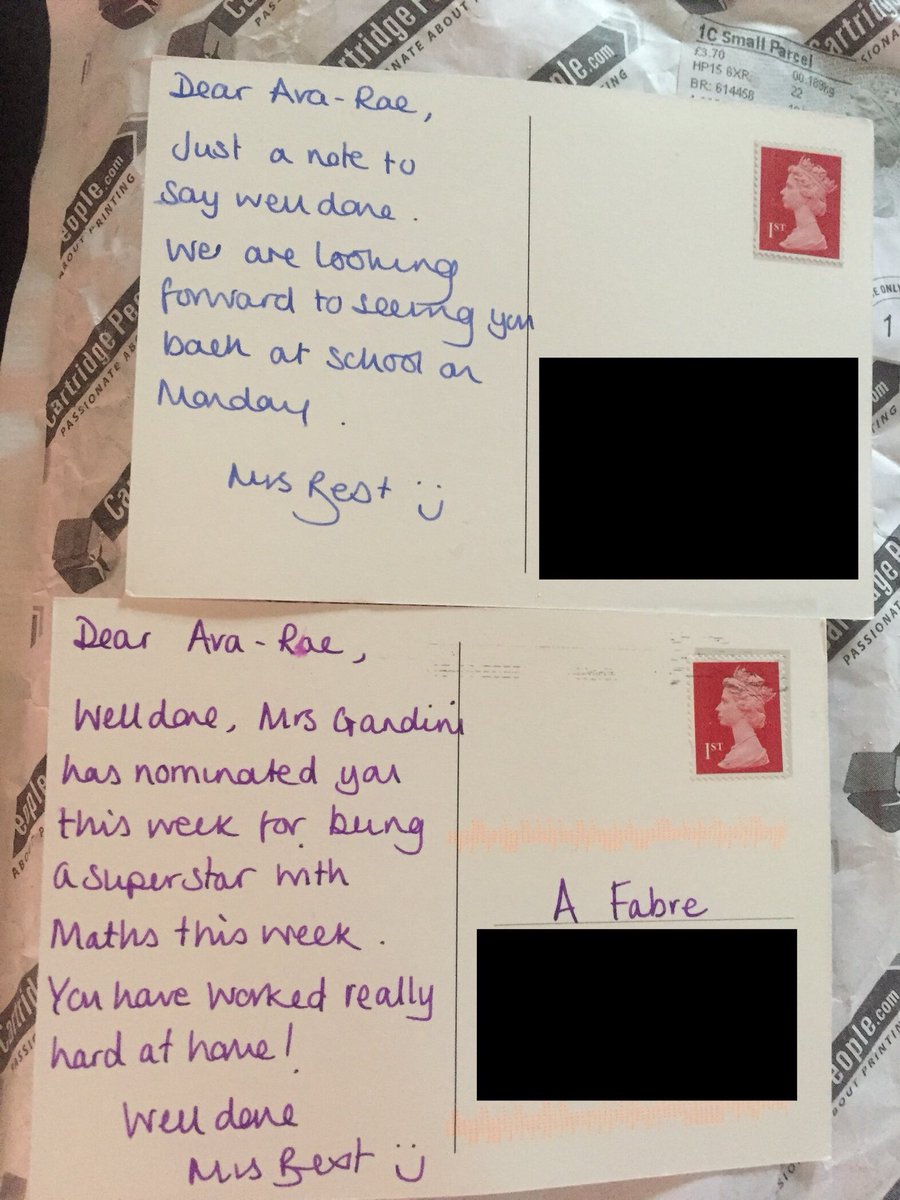 Cartridge People.com
PASSIONATE ABOUT PRINTING
1C Small Parcel
£3.70
HP15 6XR
00.189kg
BR: 614458
22
Dear Ava-Rae,
Just a note to
say well done.
We are looking
forward to seeing you
back at school on
Monday.
Mrs Best :)
1ST
1
Dear Ava-Rae,
Well done, Mrs Gandini
has nominated you
this week for being
a superstar with
Maths this week.
You have worked really
hard at home!
Well done
Mrs Best :)
1ST
A Fabre